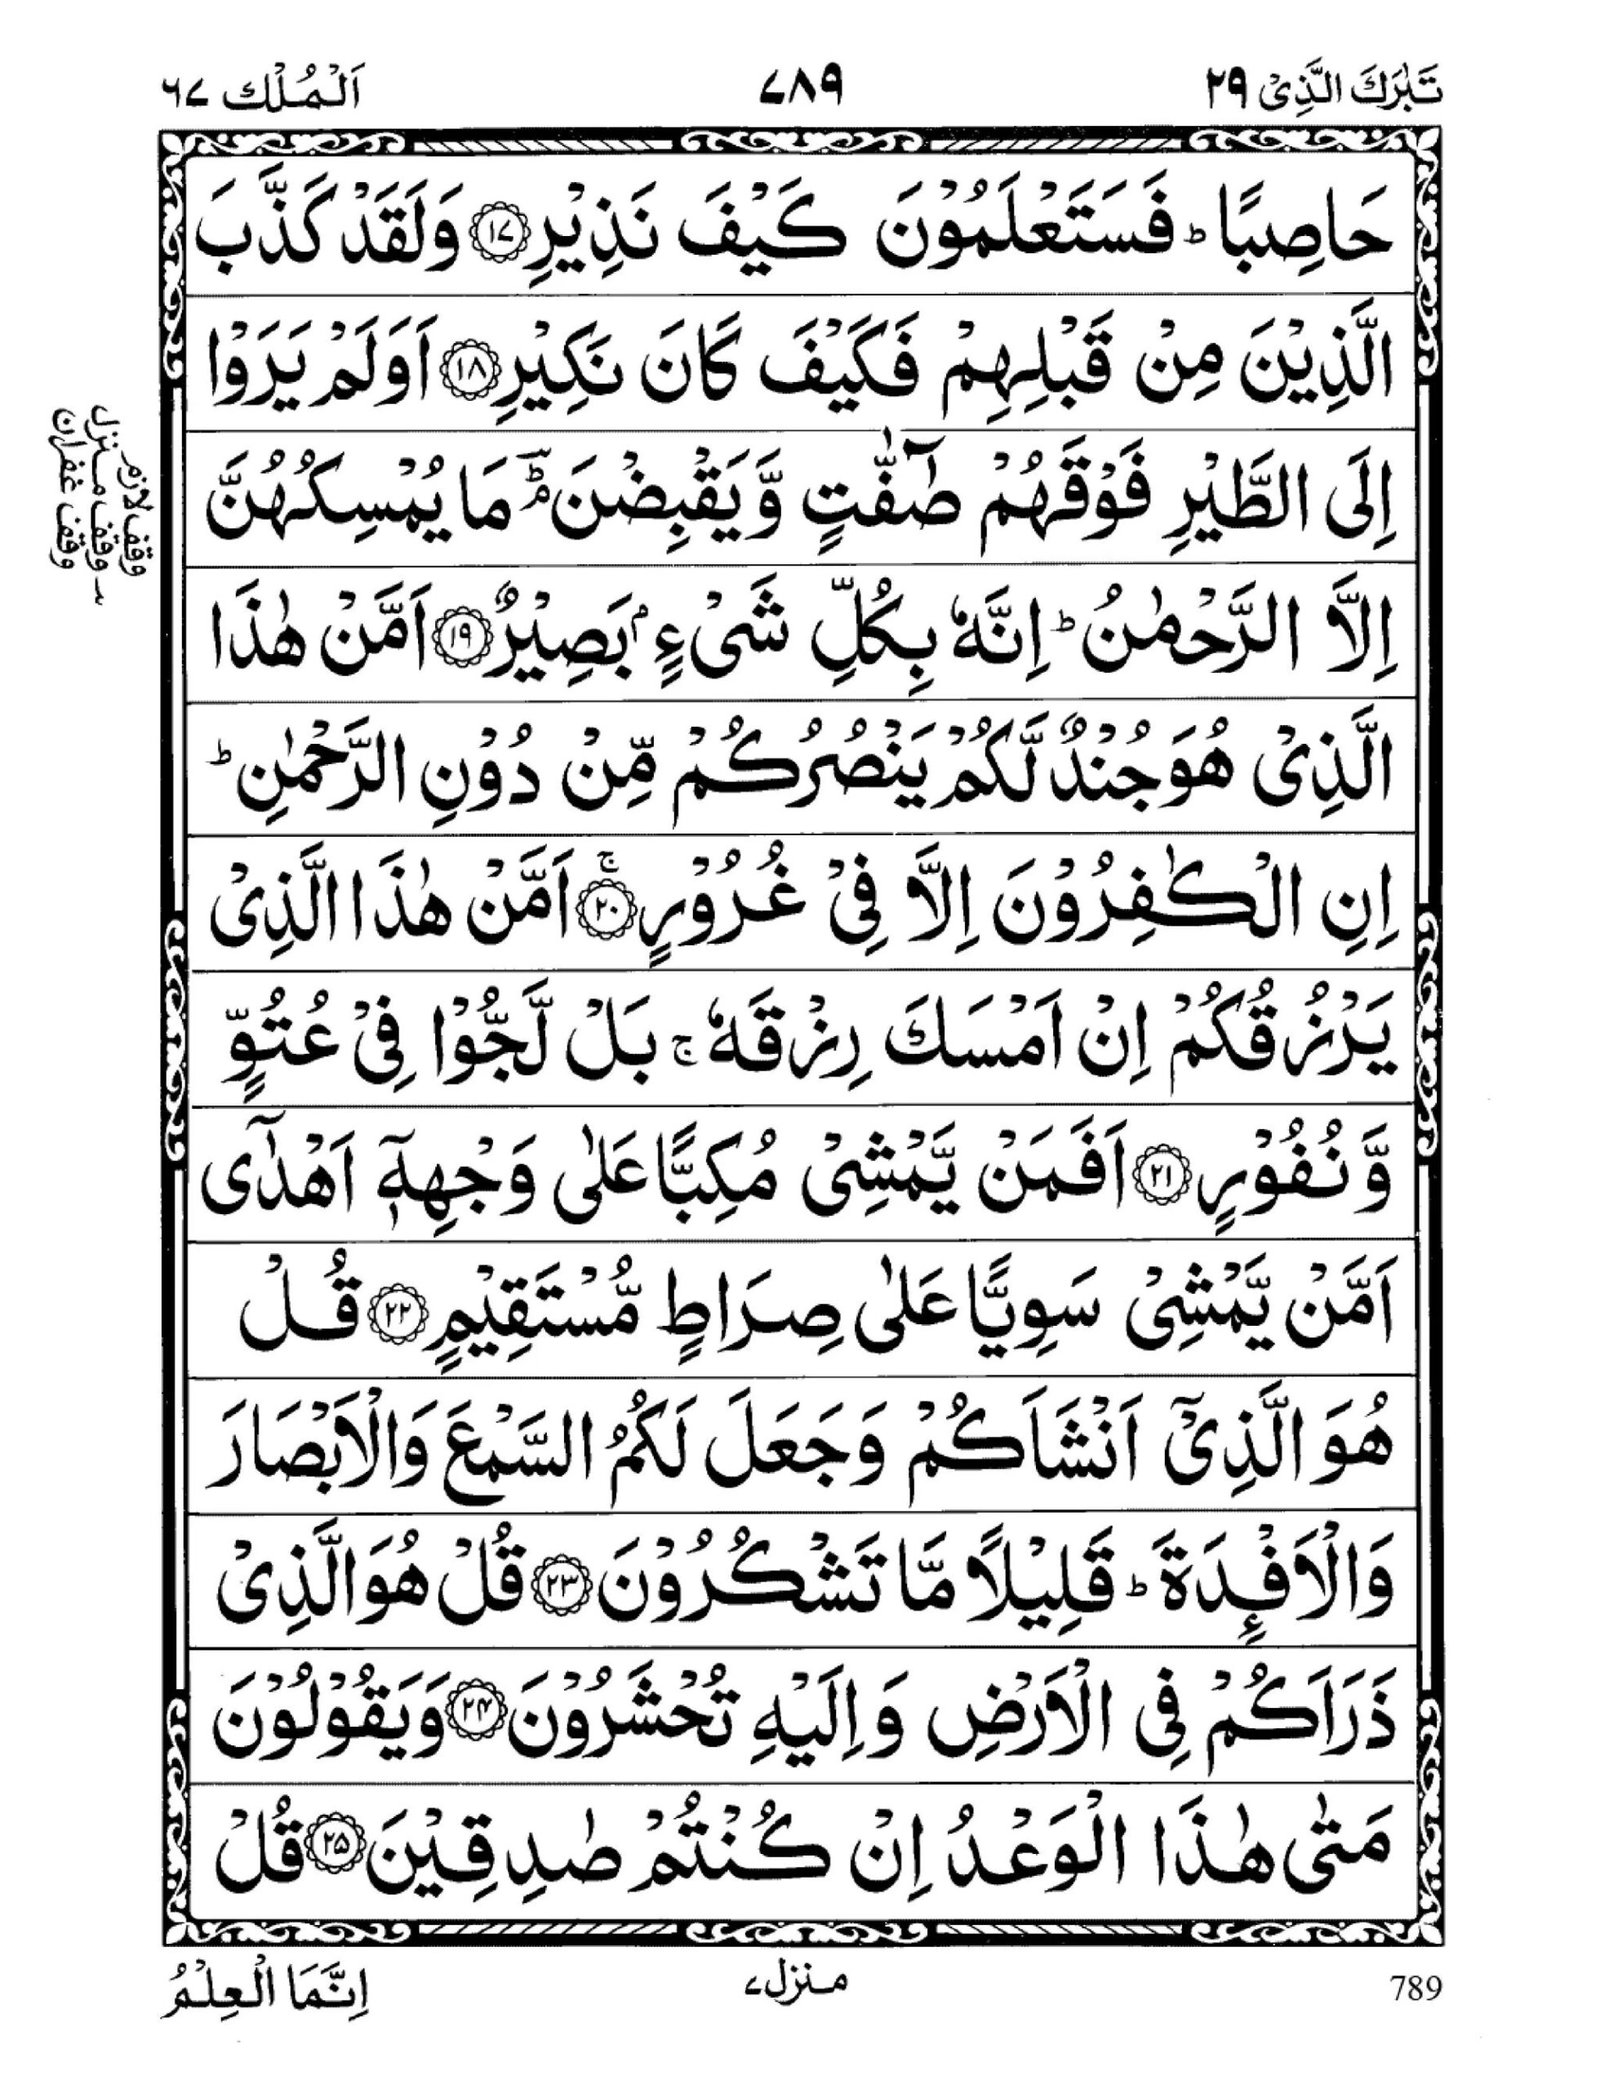 تَبٰرَكَ الَّذِیْ ۲۹
۷۸۹
اَلْمُلْك ۶۷
حَاصِبًا ؕ فَسَتَعْلَمُوْنَ كَیْفَ نَذِیْرِ ۝۱۷ وَلَقَدْ كَذَّبَ
الَّذِیْنَ مِنْ قَبْلِهِمْ فَكَیْفَ كَانَ نَكِیْرِ ۝۱۸ اَوَلَمْ یَرَوْا
اِلَی الطَّیْرِ فَوْقَهُمْ صٰٓفّٰتٍ وَّیَقْبِضْنَ ؔۘؕ مَا یُمْسِكُهُنَّ
اِلَّا الرَّحْمٰنُ ؕ اِنَّهٗ بِكُلِّ شَیْءٍۭ بَصِیْرٌ ۝۱۹ اَمَّنْ هٰذَا
الَّذِیْ هُوَ جُنْدٌ لَّكُمْ یَنْصُرُكُمْ مِّنْ دُوْنِ الرَّحْمٰنِ ؕ
اِنِ الْكٰفِرُوْنَ اِلَّا فِیْ غُرُوْرٍ ۝۲۰ ۚ اَمَّنْ هٰذَا الَّذِیْ
یَرْزُقُكُمْ اِنْ اَمْسَكَ رِزْقَهٗ ۚ بَلْ لَّجُّوْا فِیْ عُتُوٍّ
وَّنُفُوْرٍ ۝۲۱ اَفَمَنْ یَّمْشِیْ مُكِبًّا عَلٰی وَجْهِهٖۤ اَهْدٰۤی
اَمَّنْ یَّمْشِیْ سَوِیًّا عَلٰی صِرَاطٍ مُّسْتَقِیْمٍ ۝۲۲ قُلْ
هُوَ الَّذِیْۤ اَنْشَاَكُمْ وَجَعَلَ لَكُمُ السَّمْعَ وَالْاَبْصَارَ
وَالْاَفْـِٕدَةَ ؕ قَلِیْلًا مَّا تَشْكُرُوْنَ ۝۲۳ قُلْ هُوَ الَّذِیْ
ذَرَاَكُمْ فِی الْاَرْضِ وَاِلَیْهِ تُحْشَرُوْنَ ۝۲۴ وَیَقُوْلُوْنَ
مَتٰی هٰذَا الْوَعْدُ اِنْ كُنْتُمْ صٰدِقِیْنَ ۝۲۵ قُلْ
وقف لازم
وقف منزل
وقف غفران
789
منزل ۷
اِنَّمَا الْعِلْمُ